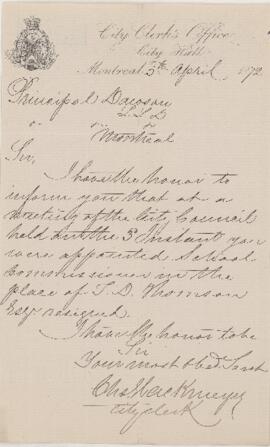 City Clerk's Office
City Hall
Montreal 5th April 1872
Principal Dawson
L.L.D
Montreal
Sir,
I have the honor to
inform you that at a
meeting of the City Council
held on the 3d Instant you
were appointed School
Commissioner in the
place of T. D. Thomson
Esq resigned.
I have the honor to be
Sir
Your most obed. Servt
Chs Glackmeyer
City Clerk